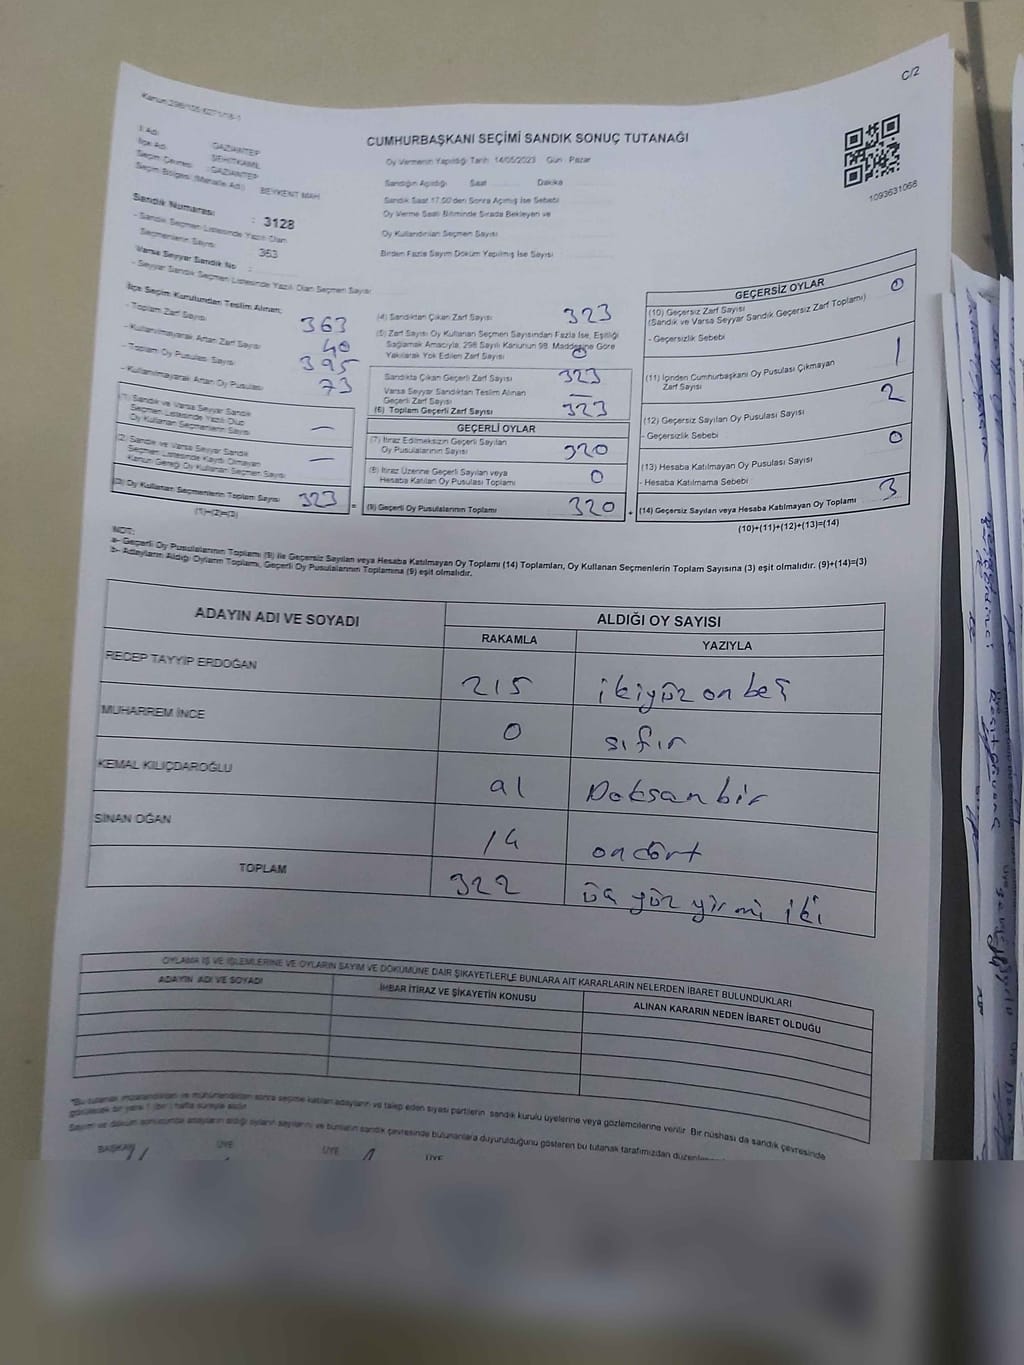 C/2
Kanun:298/105,6271/18-1
CUMHURBAŞKANI SEÇİMİ SANDIK SONUÇ TUTANAĞI
İl Adı : GAZİANTEP
İlçe Adı : ŞEHİTKAMİL
Seçim Çevresi : GAZİANTEP
Seçim Bölgesi (Mahalle Adı) : BEYKENT MAH.
Sandık Numarası : 3128
- Sandık Seçmen Listesinde Yazılı Olan
Seçmenlerin Sayısı 363
Varsa Seyyar Sandık No :
- Seyyar Sandık Seçmen Listesinde Yazılı Olan Seçmen Sayısı
Oy Vermenin Yapıldığı Tarih: 14/05/2023 Gün : Pazar
Sandığın Açıldığı Saat Dakika
Sandık Saat 17.00'den Sonra Açılmış İse Sebebi
Oy Verme Saati Bitiminde Sırada Bekleyen ve
Oy Kullandırılan Seçmen Sayısı
Birden Fazla Sayım Döküm Yapılmış İse Sayısı
1093631068
İlçe Seçim Kurulundan Teslim Alınan;
- Toplam Zarf Sayısı 363
- Kullanılmayarak Artan Zarf Sayısı 40
- Toplam Oy Pusulası Sayısı 395
- Kullanılmayarak Artan Oy Pusulası 73
(1) Sandık ve Varsa Seyyar Sandık
Seçmen Listesinde Yazılı Olup
Oy Kullanan Seçmenlerin Sayısı —
(2) Sandık ve Varsa Seyyar Sandık
Seçmen Listesinde Kaydı Olmayan
Kanun Gereği Oy Kullanan Seçmen Sayısı —
(3) Oy Kullanan Seçmenlerin Toplam Sayısı 323
(1)+(2)=(3)
(4) Sandıktan Çıkan Zarf Sayısı 323
(5) Zarf Sayısı Oy Kullanan Seçmen Sayısından Fazla İse, Eşitliği
Sağlamak Amacıyla, 298 Sayılı Kanunun 98. Maddesine Göre
Yakılarak Yok Edilen Zarf Sayısı 0
Sandıkta Çıkan Geçerli Zarf Sayısı 323
Varsa Seyyar Sandıktan Teslim Alınan
Geçerli Zarf Sayısı —
(6) Toplam Geçerli Zarf Sayısı 323
GEÇERLİ OYLAR
(7) İtiraz Edilmeksizin Geçerli Sayılan
Oy Pusulalarının Sayısı 320
(8) İtiraz Üzerine Geçerli Sayılan veya
Hesaba Katılan Oy Pusulası Toplamı 0
= (9) Geçerli Oy Pusulalarının Toplamı 320
GEÇERSİZ OYLAR
(10) Geçersiz Zarf Sayısı 0
(Sandık ve Varsa Seyyar Sandık Geçersiz Zarf Toplamı)
- Geçersizlik Sebebi
(11) İçinden Cumhurbaşkanı Oy Pusulası Çıkmayan
Zarf Sayısı 1
(12) Geçersiz Sayılan Oy Pusulası Sayısı 2
- Geçersizlik Sebebi
(13) Hesaba Katılmayan Oy Pusulası Sayısı 0
- Hesaba Katılmama Sebebi
+ (14) Geçersiz Sayılan veya Hesaba Katılmayan Oy Toplamı 3
(10)+(11)+(12)+(13)=(14)
NOT:
a- Geçerli Oy Pusulalarının Toplamı (9) ile Geçersiz Sayılan veya Hesaba Katılmayan Oy Toplamı (14) Toplamları, Oy Kullanan Seçmenlerin Toplam Sayısına (3) eşit olmalıdır. (9)+(14)=(3)
b- Adayların Aldığı Oyların Toplamı, Geçerli Oy Pusulalarının Toplamına (9) eşit olmalıdır.
ADAYIN ADI VE SOYADI ALDIĞI OY SAYISI
RAKAMLA YAZIYLA
RECEP TAYYİP ERDOĞAN 215 ikiyüz on beş
MUHARREM İNCE 0 sıfır
KEMAL KILIÇDAROĞLU 91 Doksan bir
SİNAN OĞAN 14 on dört
TOPLAM 322 üç yüz yirmi iki
OYLAMA İŞ VE İŞLEMLERİNE VE OYLARIN SAYIM VE DÖKÜMÜNE DAİR ŞİKAYETLERLE BUNLARA AİT KARARLARIN NELERDEN İBARET BULUNDUKLARI
ADAYIN ADI VE SOYADI İHBAR İTİRAZ VE ŞİKAYETİN KONUSU ALINAN KARARIN NEDEN İBARET OLDUĞU
*Bu tutanak imzalandıktan ve mühürlendikten sonra seçime katılan adayların ve talep eden siyasi partilerin sandık kurulu üyelerine veya gözlemcilerine verilir. Bir nüshası da sandık çevresinde
görülecek bir yere 1 (bir) hafta süreyle asılır.
Sayım ve döküm sonucunda adayların aldığı oyların sayılarını ve bunların sandık çevresinde bulunanlara duyurulduğunu gösteren bu tutanak tarafımızdan
BAŞKAN ÜYE ÜYE ÜYE